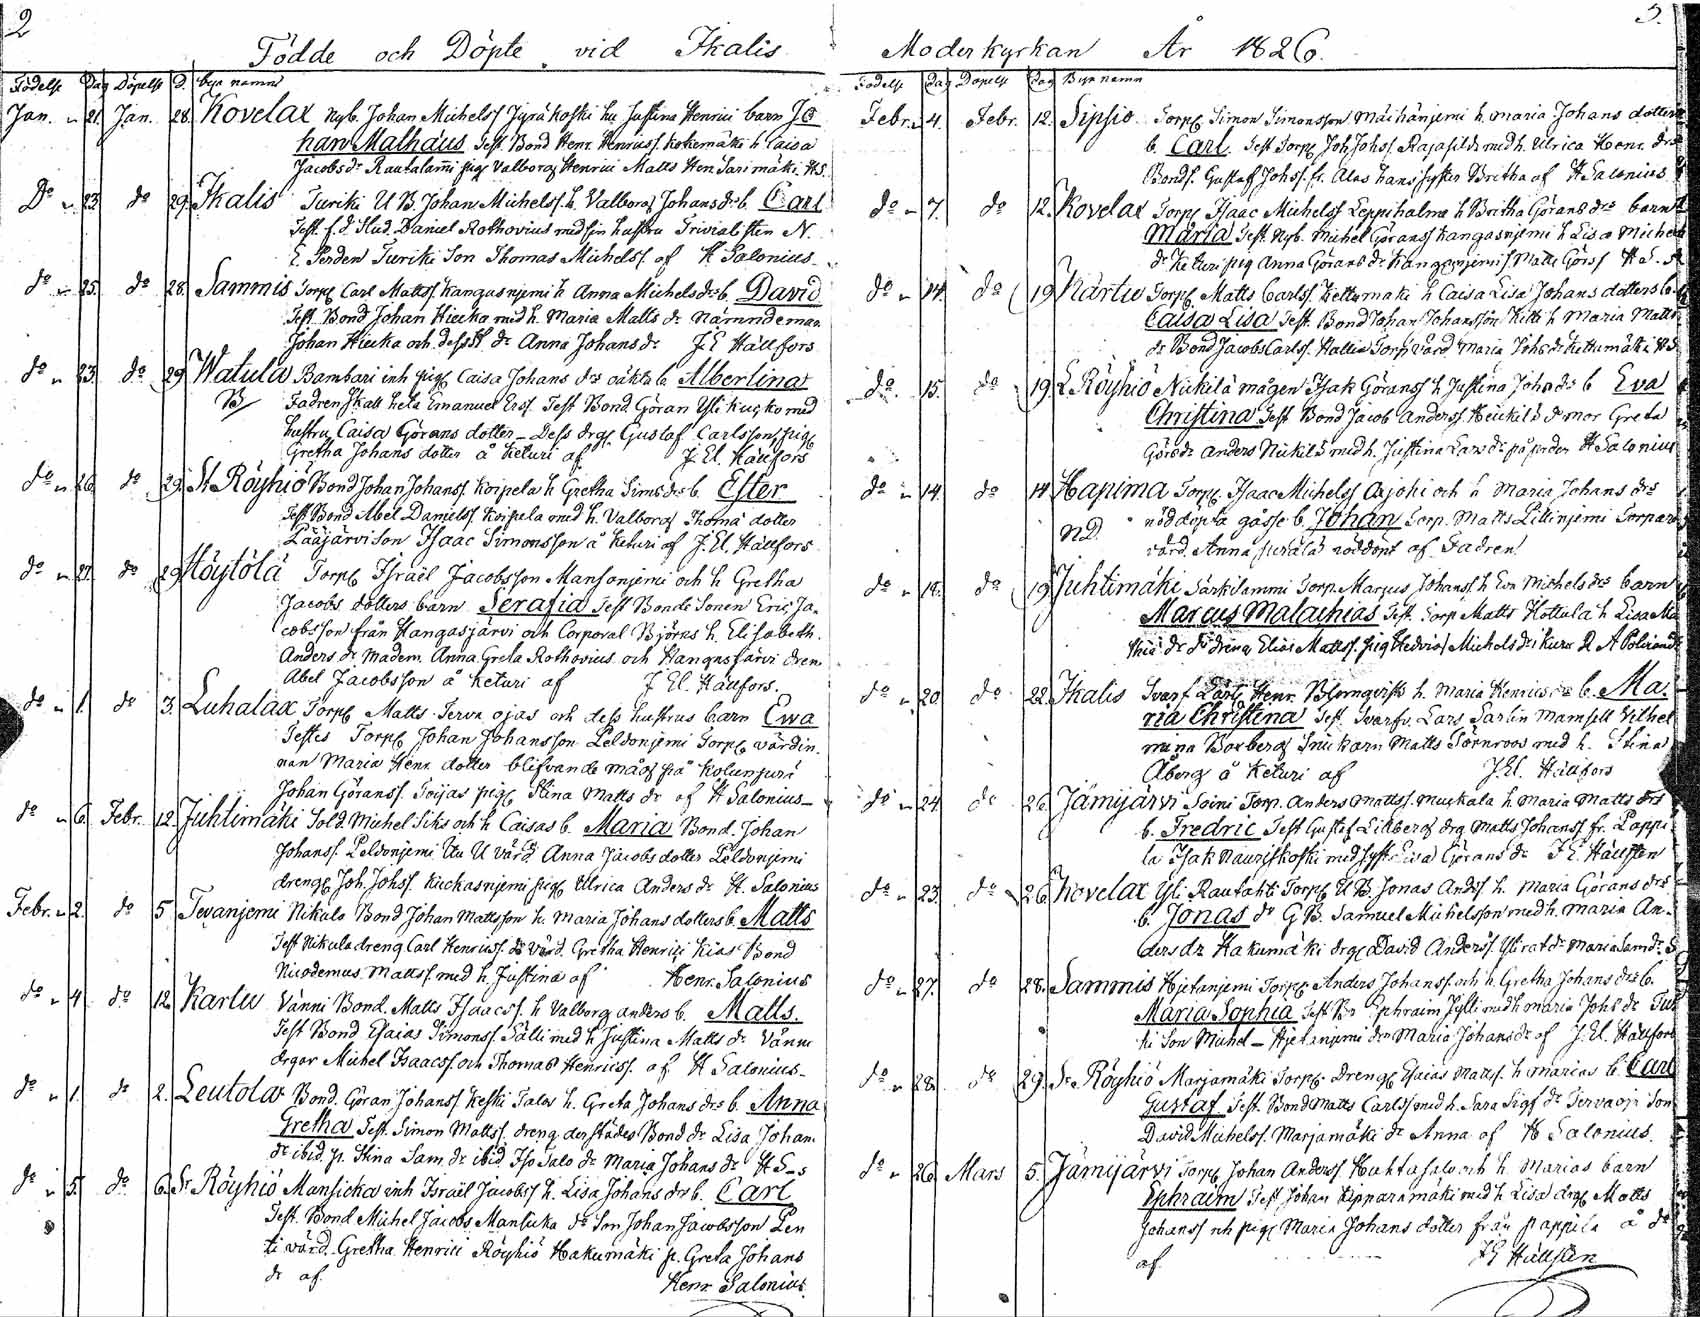 2
Födde och Döpte vid Ikalis
Födelse Dag Döpelse D. byn namn
Jan. 21. Jan. 28. Kovelax nyb. Johan Michelss Jyräkoski hu Justina Henrici barn Jo
han Mathäus Test. Bond Henr. Henrics. Kokemäki h Caisa
Jacobs dr Rautalami pig Valborg Henrici Matts Hen Sari mäki H.S.
Do 23. do 29. Ikalis Turiki U B. Johan Michelss. h. Valborg Johans dr b. Carl
Test. f. d. Stud. Daniel Rothovius med sin hustru Trivialisten N.
E. Perden Turiki Son Thomas Michelss. af H Salonius
do 25. do 28. Sammis Torp. Carl Mattss. Kangasnjemi h Anna Michels dr b. David
Test. Bond Johan Hiecka med h. Maria Matts dr Nämndeman
Johan Hiecka och dess dr Anna Johans dr J. E Hällfors
do 23. do 29 Watula Bambari inh pig Caisa Johans dr oäkta b. Albertina
Fadren skall heta Emanuel Erss. Test Bond. Göran Yli Kuckomed
hustru Caisa Görans dotter – Dess drg. Gustaf Carlsson pig
Gretha Johans dotter å Keturi af J. El. Hällfors
do 26. do 29. St Röyhiö Bond Johan Johanss Koipela h Gretha Sims dr b. Ester
Test Bond Abel Danielss. Koipela med h. Valborg Thoma dotter
Pääjärvi son Isaac Simonsson å Keturi af J. El. Hällfors
do 27. do 29 Höytölä Torp. Israël Jacobsson Mansonjemi och h Gretha
Jacobs dotters barn Serafia Test Bonde Sonen Eric Ja-
cobsson från Hangasjärvi och Corporal Björns h. Elisabeth
Anders dr Madem. Anna Greta Rothovius och Hangasjärvi dren
Abel Jacobsson å Keturi af J El. Hällfors.
do 1. do 3. Luhalax Torp. Matts Terva ojas och dess hustrus barn Ewa
Testes Torp. Johan Johansson Peldonjemi Torp. värdin
nan Maria Henr. dotter blifvande måg på Kolunjuri
Johan Göranss. Toijas pig Stina Matts dr af H Salonius
do 6. Febr. 12. Juhtimäki Sold. Michel Siks och h Caisas b. Maria Bond. Johan
Johanss. Peldonjemi U värd Anna Jacobs dotter Peldonjemi
dreng Joh. Johss. Kuckasnjemi pig Ulrica Anders dr H. Salonius
Febr. 2. do 5 Tevanjemi Nikula Bond Johan Mattsson h. Maria Johans dotters b. Matts
Test Nikula dreng Carl Henrics. do värd. Gretha Henrici Kias Bond
Nicodemus Mattss. med h. Justina af Henr. Salonius
do 4 do 12 Kartu Vänni Bond. Matts Isaacss. h Valborg anders b. Matts.
Test Bond Esaias Simonss. Sälli med h Justina Matts dr Vänni
drgar Michel Isaacss och Thomas Henrics. af H Salonius
do 1. do 2. Leutola Bond. Göran Johanss Keski Talos h. Greta Johans drs b. Anna
Gretha Test. Simon Mattss. dreng derstädes Bond dr Lisa Johan
dr ibid. p. Stina Sam. dr ibid. Iso Salo dr Maria Johans dr H S
do 5. do 6. Sr Röyhiö Mansicka inh Israël Jacobss h. Lisa Johans dr b. Carl
Test. Bond Michel Jacobs Mansicka do Son Johan Jacobsson Pen
ti värd. Gretha Henrici Röyhiö Hakumäki p. Greta Johans
dr af Henr Salonius
Moderkyrkan År 1826. 3.
Födelse Dag Döpelse Dag Byn namn
Febr. 4. Febr. 12. Sipsio Torp. Simon Simonsson Mäihänjemi h. maria Johans dotter
b. Carl. Test Torp. Joh. Johss. Rajasildt med h. Ulrica Henr. drs
Bonds. Gustaff Johss. fr. Alas hans syster Bretha af H Salonius
do 7. do 12. Kovelax Torp. Isaac Michelss Leppihalme h Britha Görans drs barn
Maria Test. Nyb. Michel Göranss Kangasnjemi h Lisa Michels
dr Keturi pig Anna Görans dr Kangasnjemi Matts Görss H S.
do 14. do 19 Kartu Torp. Matts Carlss. Kettumäki h Caisa Lisa Johans dotters b.
Caisa Lisa Test. Bond Johan Johansson Kitti h Maria Matts
dr Bond Jacobs Carlss. Hallia Torp värd Maria Johs dr Kettumäki H S
do 15. do 19. L Röyhiö Nickilä mågen Isak Göranss h Justina Johs dr b Eva
Christina Test Bond Jacob Anderss. Heickilä do mor Greta
Görs dr Anders Nickilä med h. Justina Lars dr H Salonius
do 14. do 14 Hapima Torp. Isaac Michelss Oxjoki och h Maria Johans drs
ND. nöddöpta gosse b. Johan Torp. Matts Lillinjemi Torpar
värd. Anna nöddöpt af Fadren.
do 19. do 19 Juhtimäki Särkilammi Torp. Marcus Johanss h Eva Michels drs barn
Marcus Malachias Test. Torp Matts Kottula h Lisa Ma
thie dr do dreng Elias Mattss. pig Hedvig Michels dr
do 20. do 22. Ikalis Svarf Lärl. Henr. Blomqvists h. Maria Henrics dr b. Ma.
ria Christina Test. Svarfv. Lars Sarlin Mamsell Vilhel
mina Boxberg Snickarn Matts Törnroos med h. Stina
Åberg å Keturi af J. El. Hällfors
do 24. do 26. Jämijärvi Soini Torp. Anders Mattss. Muckala h maria Matts drs
b. Fredric Test Gustaf Lillberg drg Matts Johanss fr. Pappi
la Isak Nauriskoski med syst. Görans dr J E. Hällsten
do 23. do 26. Kovelax Yli Rautahti Torp. U B. Jonas Andss h. Maria Görans drs
b. Jonas do G B. Samuel Michelsson med h. maria An-
ders dr Hakumäki drg. David Anderss. dr Maria Sam dr
do 27. do 28. Sammis Hjetanjemi Torp. Anders Johanss. och h. Gretha Johans drs b.
Maria Sophia Test. Br Ephraim Jylli med h maria Johs dr Tur
ki Son Michel – Hjetanjemi dr Maria Johans dr af J. El. Hällfors
do 28. do 29. Sr Röyhiö Marjamäki Torp. Dreng Esaias Matts. h marias b. Carl
Gustaf Test. Bond Matts Carlss med h. Sara Sigf dr Tervaoja Son
David Michelss. Marjamäki dr Anna af H Salonius.
do 26 Mars 5. Jämijärvi Torp Johan Anderss Huhtasalo och h. Marias barn
Ephraim Test Johan Kippäramäki med h Lisa drg. Matts
Johanss nh pig Maria Johans dotter från Pappila å do
af J E Hällsten